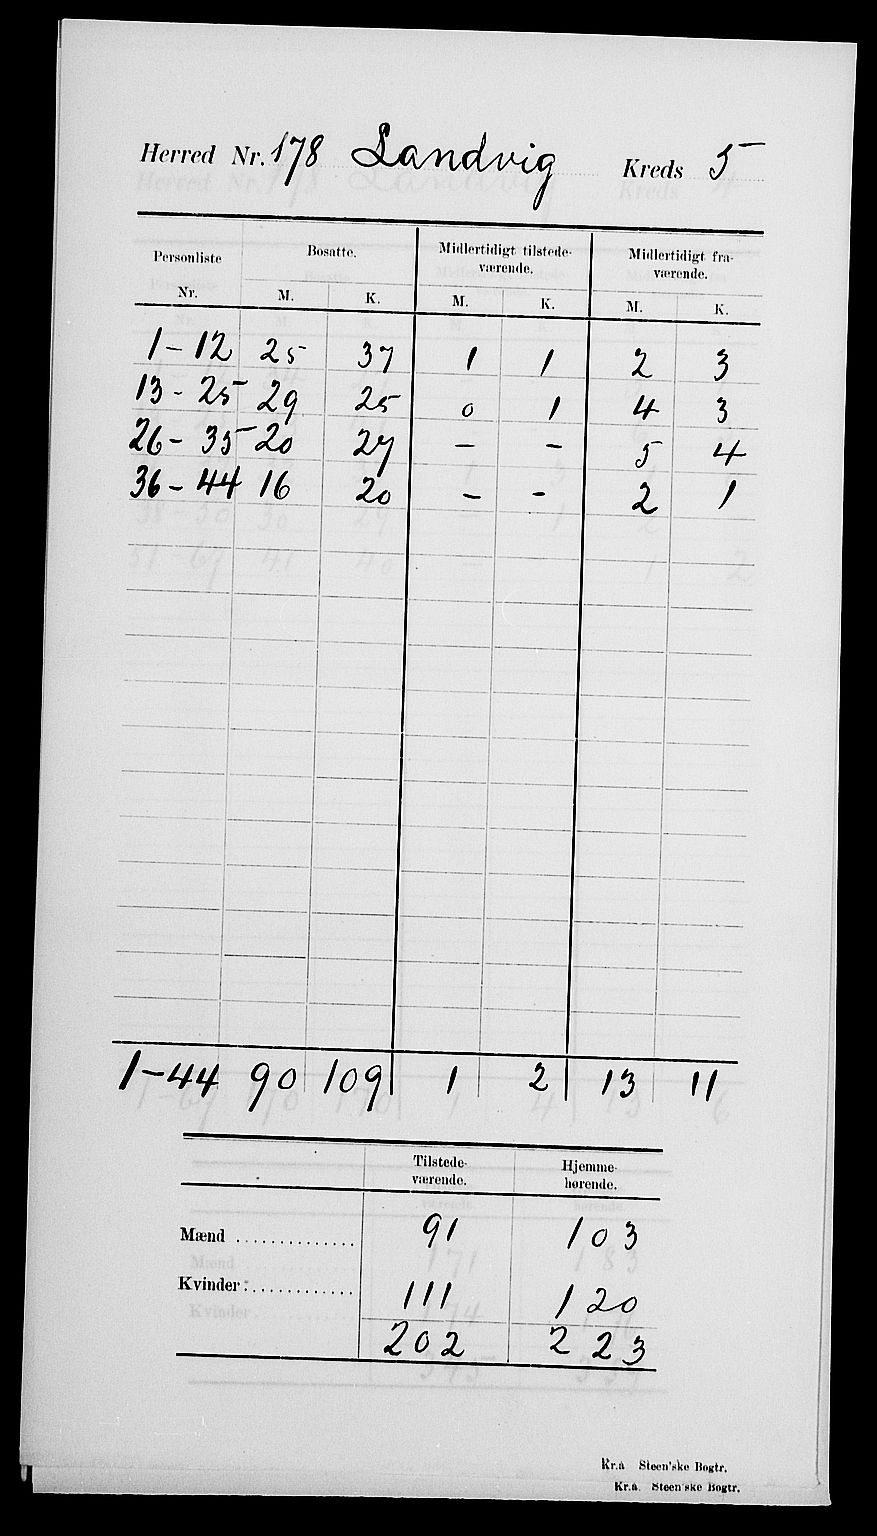 Herred Nr. 178 Landvig Kreds 5
Personliste Nr. Bosatte. Midlertidigt tilstedeværende. Midlertidigt fraværende.
M. K. M. K. M. K.
1-12 25 37 1 1 2 3
13-25 29 25 0 1 4 3
26-35 20 27 - - 5 4
36-44 16 20 - - 2 1
1-44 90 109 1 2 13 11
Tilstedeværende. Hjemmehørende.
Mænd .............. 91 103
Kvinder: ............ 111 120
202 223
Kr.a Steen'ske Bogtr.
Kr.a. Steen'ske Bogtr.